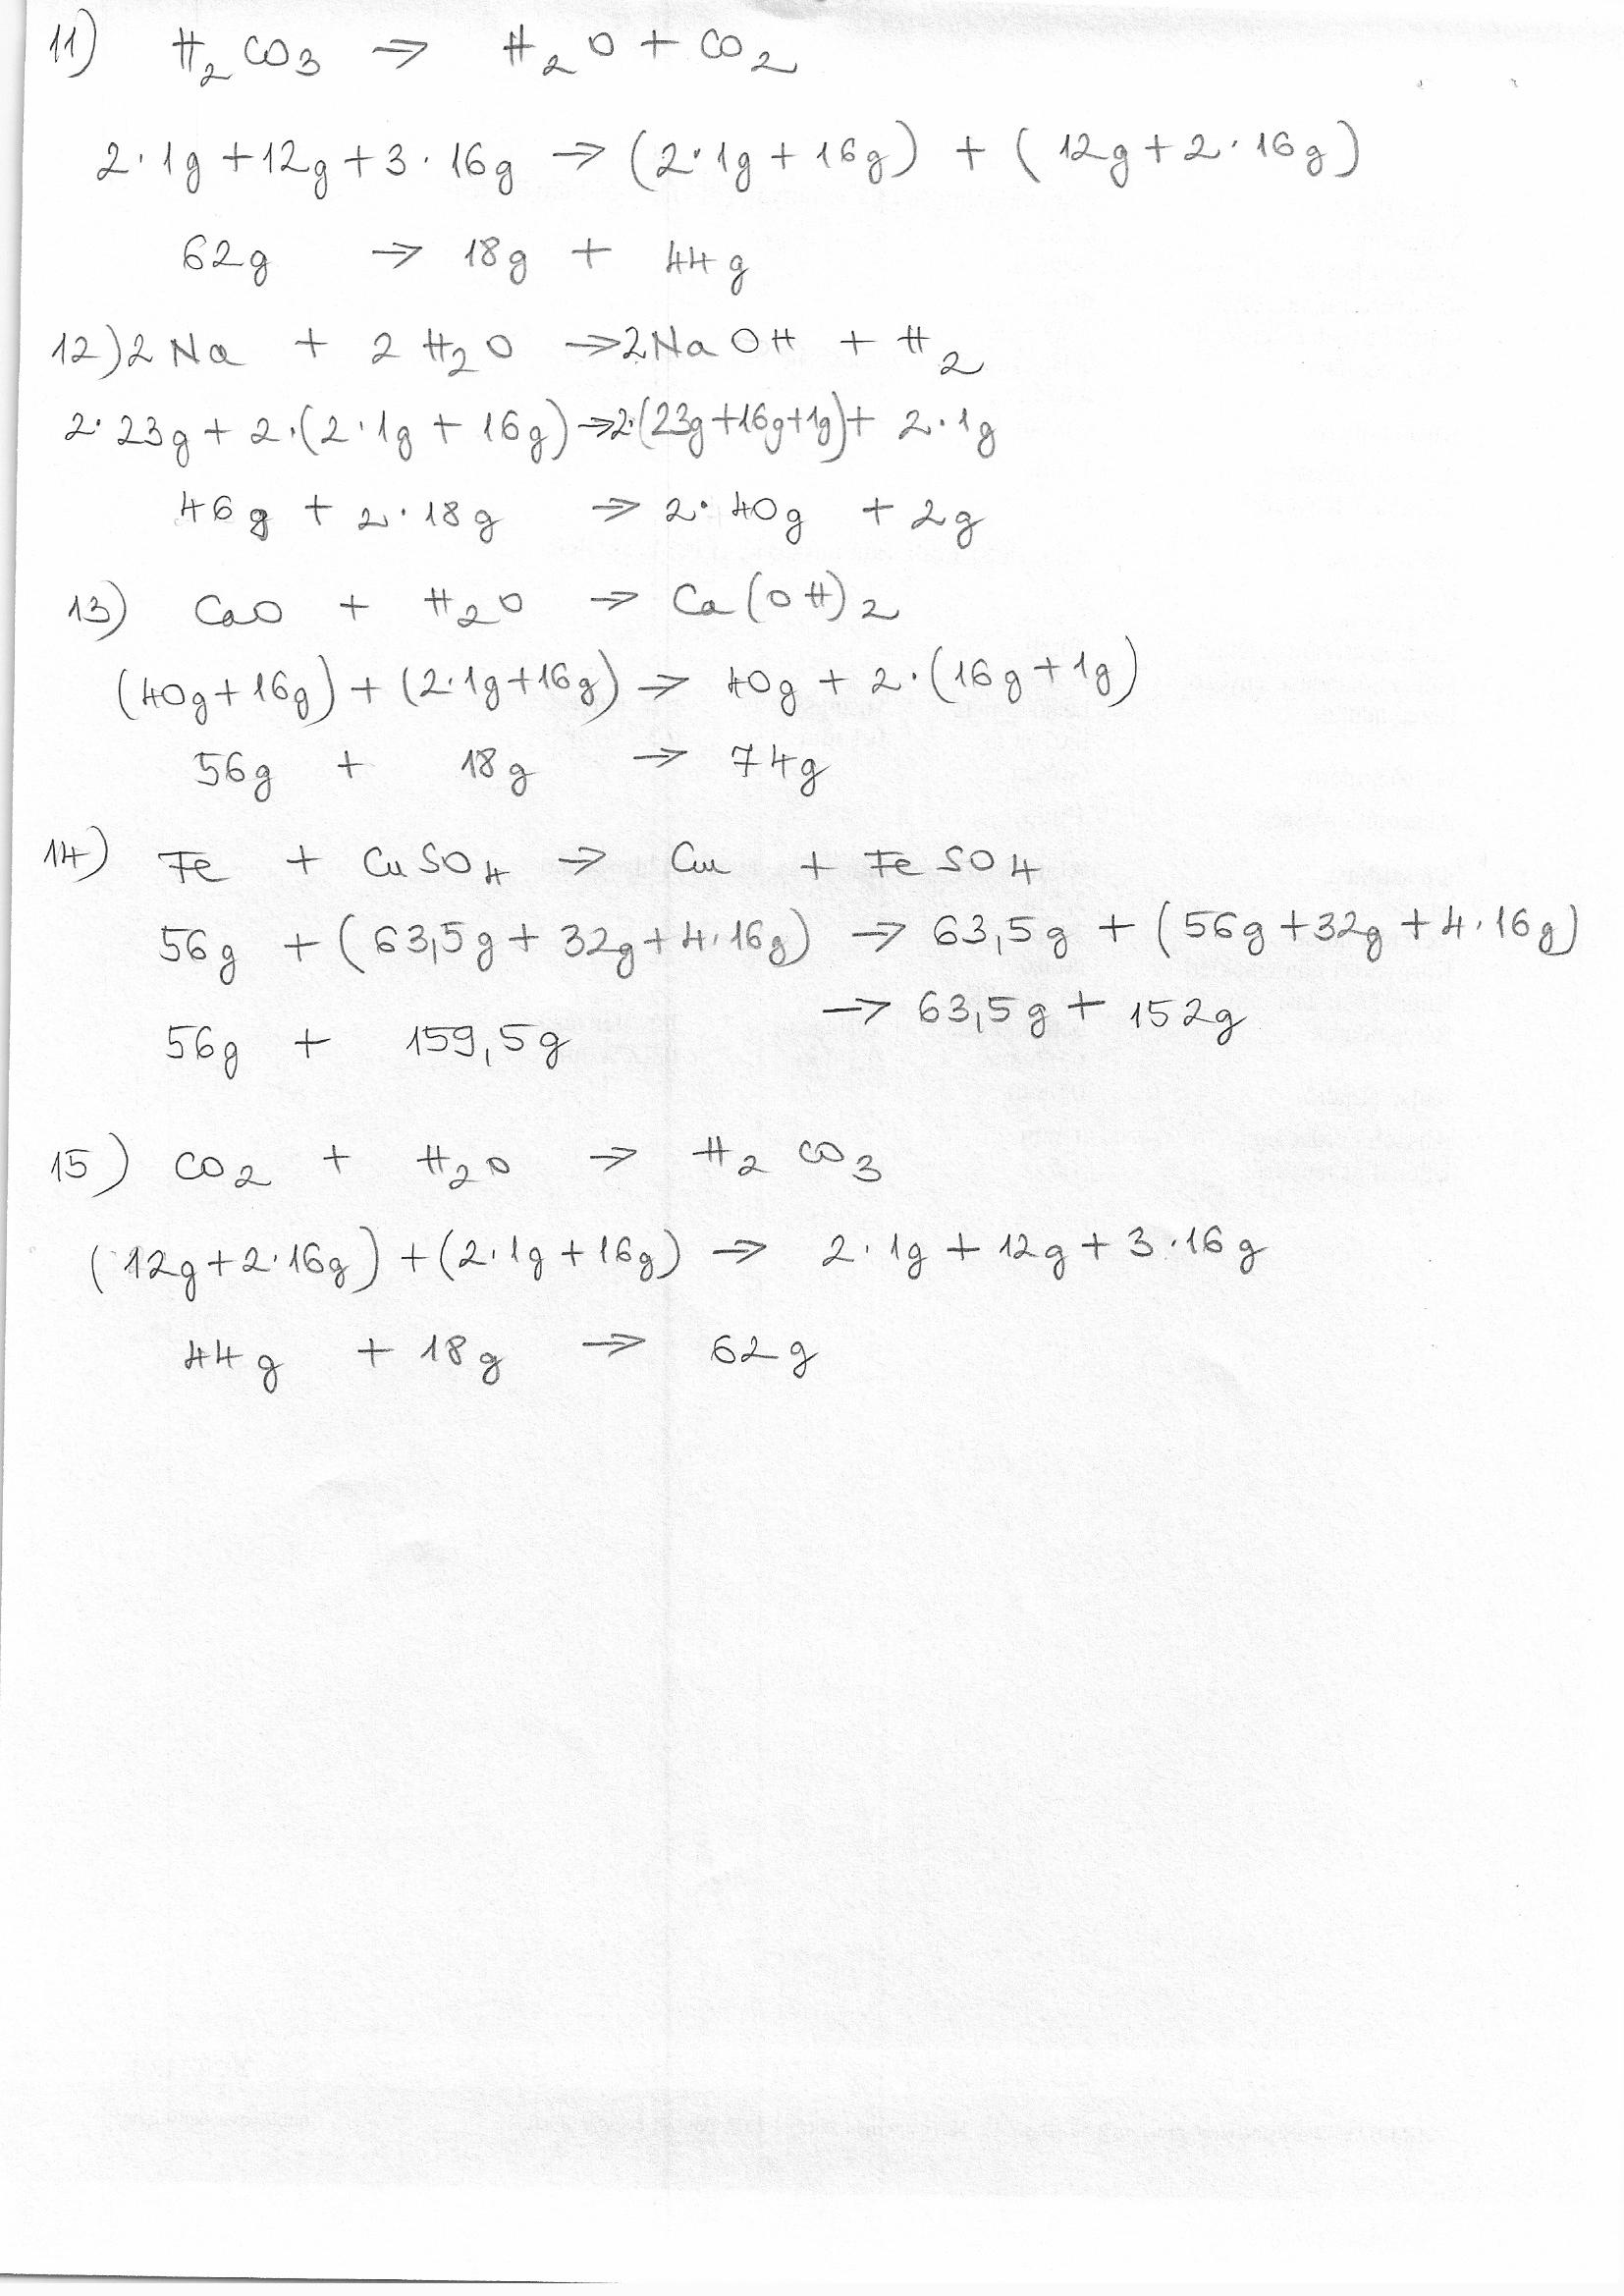 11) H₂CO₃ → H₂O + CO₂
2·1g + 12g + 3·16g → (2·1g + 16g) + (12g + 2·16g)
62g → 18g + 44g
12) 2Na + 2H₂O → 2NaOH + H₂
2·23g + 2·(2·1g + 16g) → 2·(23g + 16g + 1g) + 2·1g
46g + 2·18g → 2·40g + 2g
13) CaO + H₂O → Ca(OH)₂
(40g + 16g) + (2·1g + 16g) → 40g + 2·(16g + 1g)
56g + 18g → 74g
14) Fe + CuSO₄ → Cu + FeSO₄
56g + (63,5g + 32g + 4·16g) → 63,5g + (56g + 32g + 4·16g)
56g + 159,5g → 63,5g + 152g
15) CO₂ + H₂O → H₂CO₃
(12g + 2·16g) + (2·1g + 16g) → 2·1g + 12g + 3·16g
44g + 18g → 62g